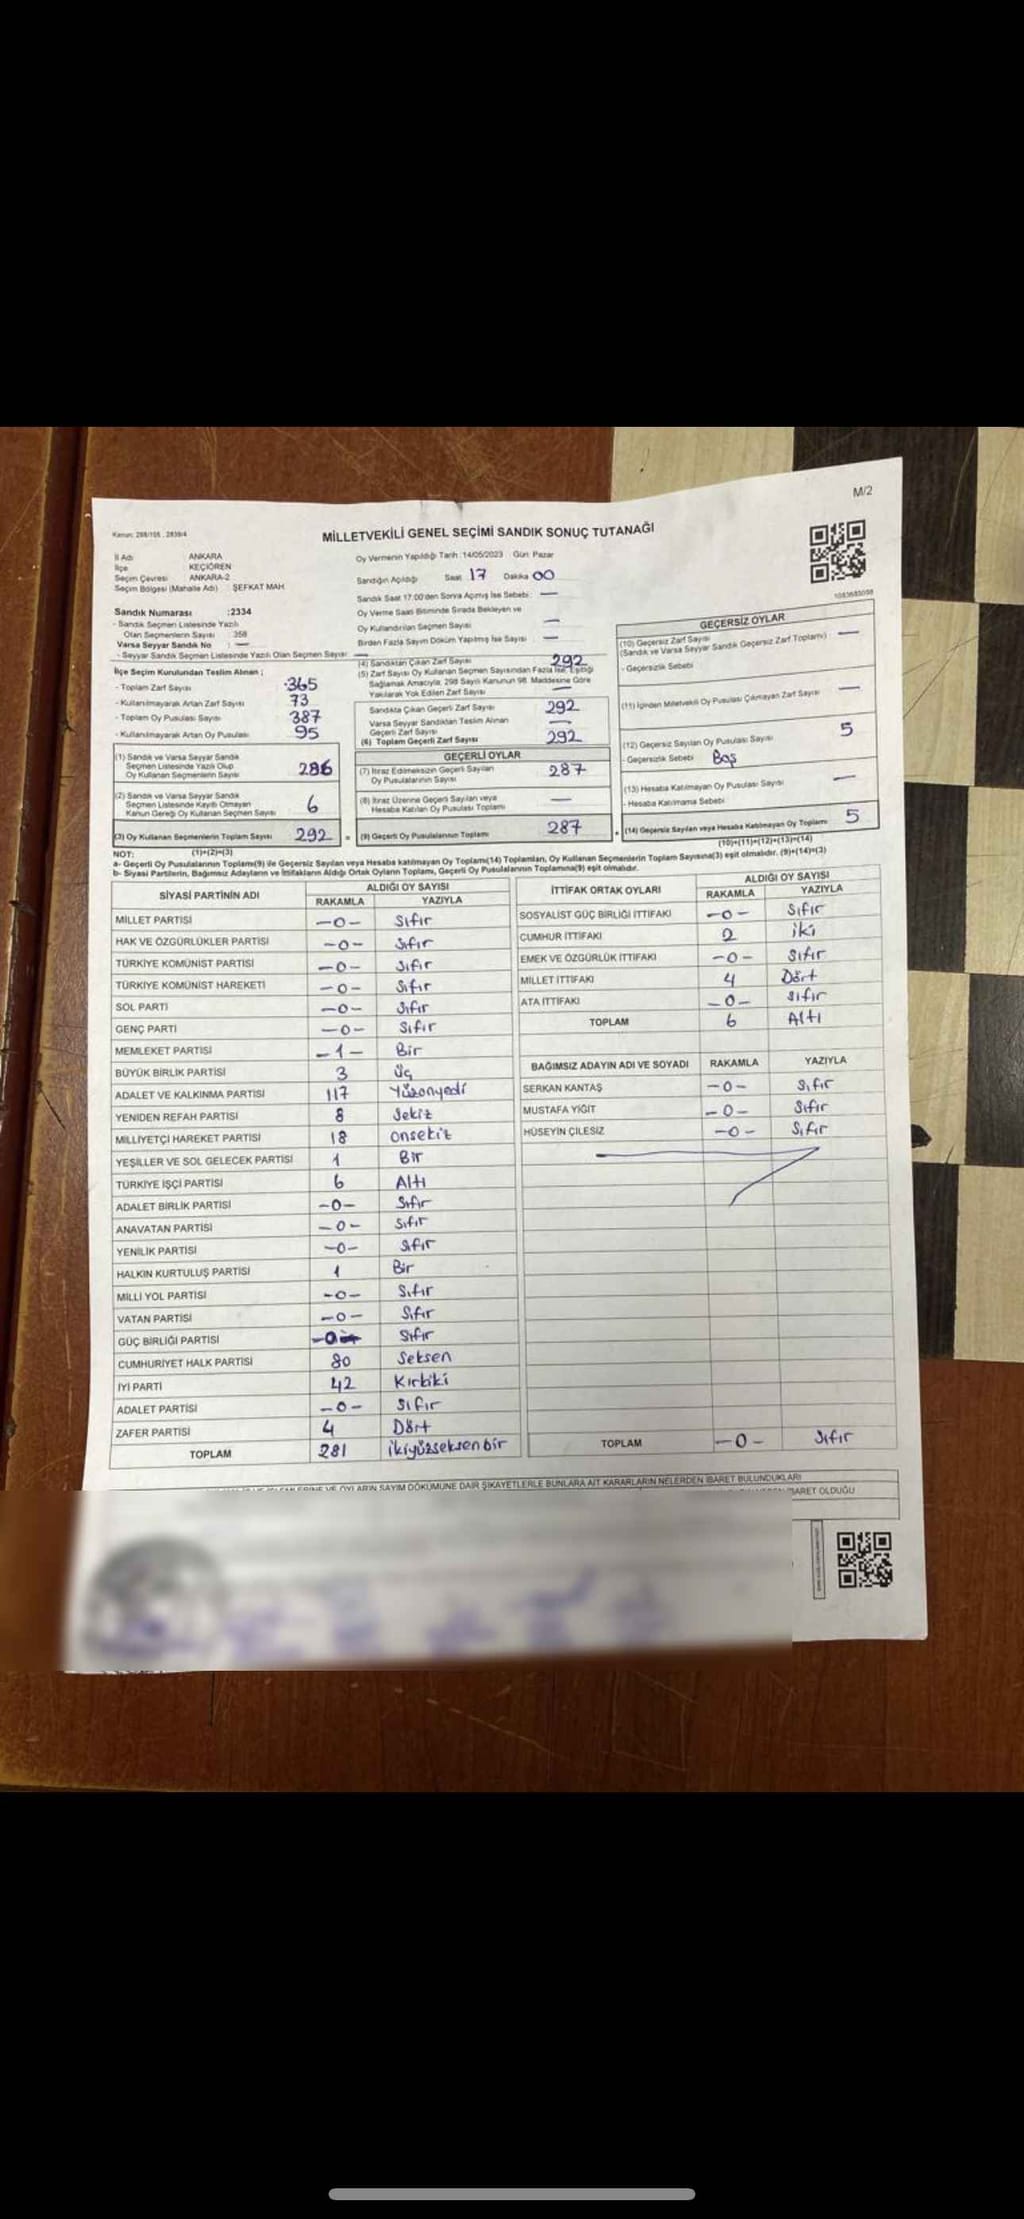 M/2
Kanun: 298/105 , 2839/4
MİLLETVEKİLİ GENEL SEÇİMİ SANDIK SONUÇ TUTANAĞI
İl Adı ANKARA
İlçe KEÇİÖREN
Seçim Çevresi ANKARA-2
Seçim Bölgesi (Mahalle Adı) : ŞEFKAT MAH
Sandık Numarası :2334
- Sandık Seçmen Listesinde Yazılı
Olan Seçmenlerin Sayısı : 358
Varsa Seyyar Sandık No : —
- Seyyar Sandık Seçmen Listesinde Yazılı Olan Seçmen Sayısı: —
İlçe Seçim Kurulundan Teslim Alınan ;
- Toplam Zarf Sayısı 365
- Kullanılmayarak Artan Zarf Sayısı 73
- Toplam Oy Pusulası Sayısı 387
- Kullanılmayarak Artan Oy Pusulası 95
(1) Sandık ve Varsa Seyyar Sandık
Seçmen Listesinde Yazılı Olup
Oy Kullanan Seçmenlerin Sayısı 286
(2) Sandık ve Varsa Seyyar Sandık
Seçmen Listesinde Kayıtlı Olmayan
Kanun Gereği Oy Kullanan Seçmen Sayısı 6
(3) Oy Kullanan Seçmenlerin Toplam Sayısı 292 =
(1)+(2)=(3)
Oy Vermenin Yapıldığı Tarih :14/05/2023 Gün: Pazar
Sandığın Açıldığı Saat 17 Dakika 00
Sandık Saat 17:00'den Sonra Açılmış İse Sebebi: —
Oy Verme Saati Bitiminde Sırada Bekleyen ve
Oy Kullandırılan Seçmen Sayısı —
Birden Fazla Sayım Döküm Yapılmış İse Sayısı —
(4) Sandıktan Çıkan Zarf Sayısı 292
(5) Zarf Sayısı Oy Kullanan Seçmen Sayısından Fazla İse, Eşitliği
Sağlamak Amacıyla, 298 Sayılı Kanunun 98. Maddesine Göre
Yakılarak Yok Edilen Zarf Sayısı —
Sandıkta Çıkan Geçerli Zarf Sayısı 292
Varsa Seyyar Sandıktan Teslim Alınan
Geçerli Zarf Sayısı —
(6) Toplam Geçerli Zarf Sayısı 292
GEÇERLİ OYLAR
(7) İtiraz Edilmeksizin Geçerli Sayılan
Oy Pusulalarının Sayısı 287
(8) İtiraz Üzerine Geçerli Sayılan veya
Hesaba Katılan Oy Pusulası Toplamı —
(9) Geçerli Oy Pusulalarının Toplamı 287 +
1083683098
GEÇERSİZ OYLAR
(10) Geçersiz Zarf Sayısı —
(Sandık ve Varsa Seyyar Sandık Geçersiz Zarf Toplamı)
- Geçersizlik Sebebi
(11) İçinden Milletvekili Oy Pusulası Çıkmayan Zarf Sayısı —
(12) Geçersiz Sayılan Oy Pusulası Sayısı 5
- Geçersizlik Sebebi Boş
(13) Hesaba Katılmayan Oy Pusulası Sayısı —
- Hesaba Katılmama Sebebi
(14) Geçersiz Sayılan veya Hesaba Katılmayan Oy Toplamı 5
(10)+(11)+(12)+(13)=(14)
NOT:
a- Geçerli Oy Pusulalarının Toplamı(9) ile Geçersiz Sayılan veya Hesaba katılmayan Oy Toplamı(14) Toplamları, Oy Kullanan Seçmenlerin Toplam Sayısına(3) eşit olmalıdır. (9)+(14)=(3)
b- Siyasi Partilerin, Bağımsız Adayların ve İttifakların Aldığı Ortak Oyların Toplamı, Geçerli Oy Pusulalarının Toplamına(9) eşit olmalıdır.
SİYASİ PARTİNİN ADI ALDIĞI OY SAYISI
RAKAMLA YAZIYLA
MİLLET PARTİSİ —0— Sıfır
HAK VE ÖZGÜRLÜKLER PARTİSİ —0— Sıfır
TÜRKİYE KOMÜNİST PARTİSİ —0— Sıfır
TÜRKİYE KOMÜNİST HAREKETİ —0— Sıfır
SOL PARTİ —0— Sıfır
GENÇ PARTİ —0— Sıfır
MEMLEKET PARTİSİ —1— Bir
BÜYÜK BİRLİK PARTİSİ 3 Üç
ADALET VE KALKINMA PARTİSİ 117 Yüzonyedi
YENİDEN REFAH PARTİSİ 8 Sekiz
MİLLİYETÇİ HAREKET PARTİSİ 18 Onsekiz
YEŞİLLER VE SOL GELECEK PARTİSİ 1 Bir
TÜRKİYE İŞÇİ PARTİSİ 6 Altı
ADALET BİRLİK PARTİSİ —0— Sıfır
ANAVATAN PARTİSİ —0— Sıfır
YENİLİK PARTİSİ —0— Sıfır
HALKIN KURTULUŞ PARTİSİ 1 Bir
MİLLİ YOL PARTİSİ —0— Sıfır
VATAN PARTİSİ —0— Sıfır
GÜÇ BİRLİĞİ PARTİSİ —0— Sıfır
CUMHURİYET HALK PARTİSİ 80 Seksen
İYİ PARTİ 42 Kırkiki
ADALET PARTİSİ —0— Sıfır
ZAFER PARTİSİ 4 Dört
TOPLAM 281 ikiyüzseksenbir
İTTİFAK ORTAK OYLARI ALDIĞI OY SAYISI
RAKAMLA YAZIYLA
SOSYALİST GÜÇ BİRLİĞİ İTTİFAKI —0— Sıfır
CUMHUR İTTİFAKI 2 iki
EMEK VE ÖZGÜRLÜK İTTİFAKI —0— Sıfır
MİLLET İTTİFAKI 4 Dört
ATA İTTİFAKI —0— Sıfır
TOPLAM 6 Altı
BAĞIMSIZ ADAYIN ADI VE SOYADI RAKAMLA YAZIYLA
SERKAN KANTAŞ —0— Sıfır
MUSTAFA YİĞİT —0— Sıfır
HÜSEYİN ÇİLESİZ —0— Sıfır
TOPLAM —0— Sıfır
OYLARIN SAYIM DÖKÜMÜNE DAİR ŞİKAYETLERLE BUNLARA AİT KARARLARIN NELERDEN İBARET BULUNDUKLARI
İBARET OLDUĞU